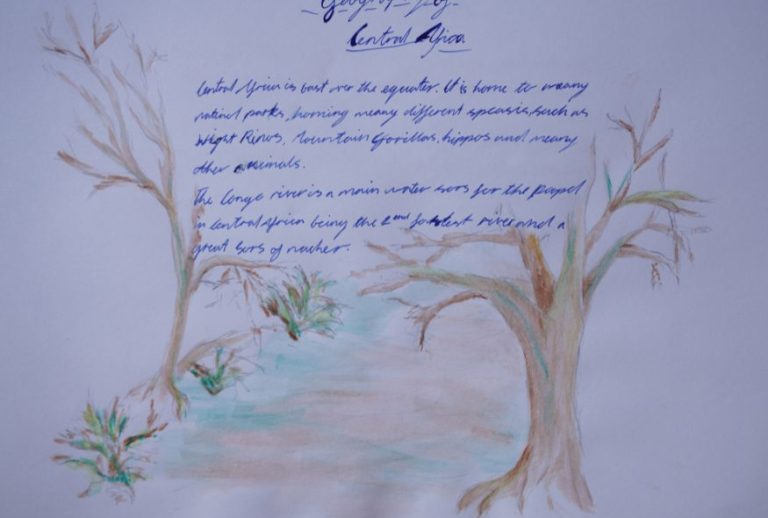 Geography of
Central Africa
Central Africa is cast over the equater. It is home to meany
natinal parks, homing meany different speasis, such as
Wight Rinos, Mountain Gorillas, hippos and meany
other animals.
The Congo river is a main water sors for the peapel
in Central Africa being the 2nd fastest river and a
great sors of nacher.